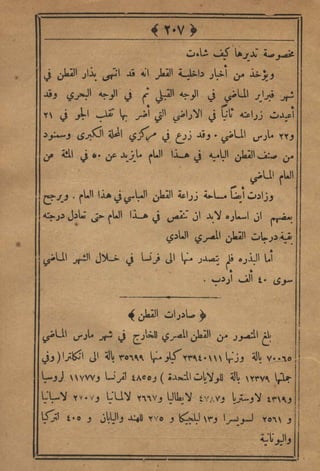 ﴿ ٢٠٧ ﴾
مخصوصة تديرها كيف شاءت
ويؤخذ من أخبار داخلية القطر انه قد انتهى بذار القطن في
شهر فبراير الماضي في الوجه القبلي ثم في الوجه البحري وقد
أعيدت زراعته ثانياً في الاراضي التي أضر بها تقلب الجو في ٢١
و٢٢ مارس الماضي ٠ وقد زرع في مركزي المحلة الكبرى وسمنود
من صنف القطن الياميه في هذا العام مايزيد عن ٥٠ في المئة عن
العام الماضي
وزادت أيضاً مساحة زراعة القطن العباسي في هذا العام ٠ ويرجح
بعضهم ان اسعاره لابد ان تنقص في هذا العام حتى تعادل درجته
بقية درجات القطن المصري العادي
أما البذره فلم يتصدر منها الى فرنسا في خلال الشهر الماضي
سوى ٤٠ ألف أردب ٠
﴿ صادرات القطن ﴾
بلغ المتصور من القطن المصري للخارج في شهر مارس الماضي
٧٠٠٦٥ بالة وزنها ٢٣٩٤٠١١١ كيلو منها ٣٥٦٩٩ بالة الى انكلترا (وفي
جملتها ١٢٣٧٩ بالة للولايات المتحدة ) و٤٨٥٥ لفرنسا و ١١٧٧٧ لروسيا
و٤٣١٩ لاوستريا و٤٧٨٧ لايطاليا و٢٦٦٧ لالمانيا و٢٧٠٧ لاسبانيا
و ٢٥٦١ لسويسرا و١٣ لبلجيكا و ٢٧٥ للهند واليابان و ٤٠٥ لتركيا
واليونانية